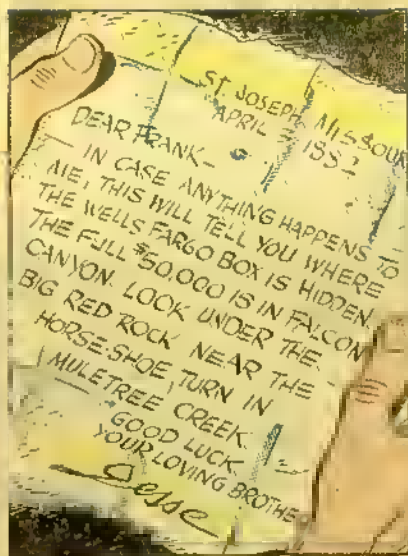 ST. JOSEPH, MISSOURI
APRIL - 1882
DEAR FRANK —
— IN CASE ANYTHING HAPPENS TO
ME, THIS WILL TELL YOU WHERE
THE WELLS FARGO BOX IS HIDDEN.
THE FULL $50,000 IS IN FALCON
CANYON. LOOK UNDER THE
BIG RED ROCK NEAR THE
HORSE-SHOE TURN IN
MULETREE CREEK.
GOOD LUCK.
YOUR LOVING BROTHE
Jesse